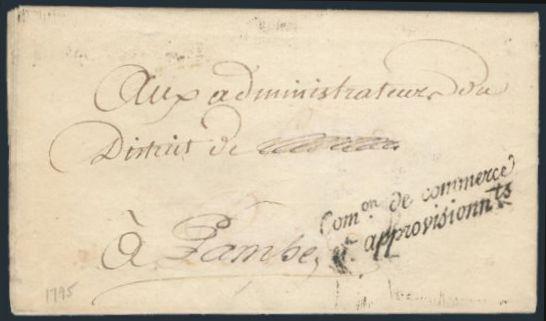 Aux administrateurs du
District de
à Lambez
Com.on de commerce
et approvisionn.ts
1795